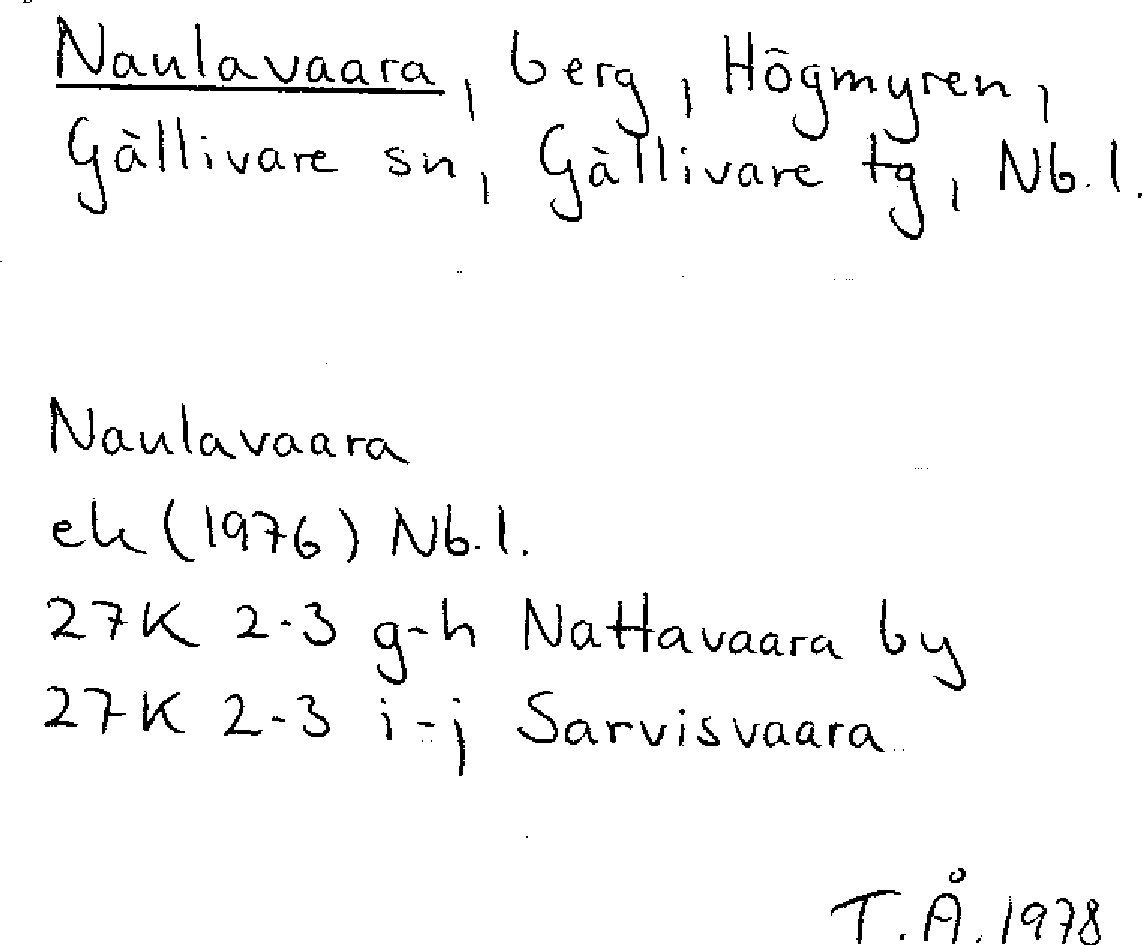 Naulavaara, berg, Högmyren,
Gällivare sn, Gällivare tg, Nb.l.
Naulavaara
ek (1976) Nb.l.
27K 2-3 g-h Nattavaara by
27K 2-3 i-j Sarvisvaara
T.Å. 1978